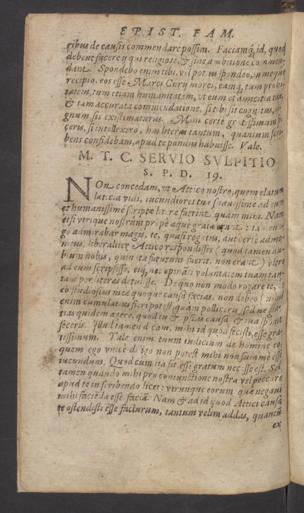 EPIST. FAM.
ribus de causis commendare possim. Faciamq́; id, quod
debent facere ij qui religiose, & sine ambitione commen-
dant. Spondebo enim tibi, vel potius spondeo,
recipio, eos esse Marci Curij mores, eamq́, tum probi-
tatem, tum etiam humanitatem, vt eum et amicitia tua,
& tam accurata commendatione, si tibi sit cognitus,
gnum sis existimaturus. Mihi certe gratissimum
ceris, si intellexero, has literas tantum, quantum scri-
bens confidebam, apud te pondus habuisse. Vale.
M. T. C. SERVIO SVLPITIO
S. P. D. 19.
NOn concedam, vt Attico nostro, quem elatum
lætitia vidi, iucundiores tuæ suauissime ad eum
et humanissime scriptæ literæ fuerint, quam mihi. Nam
etsi vtrique nostrum prope æque gratæ erant: tamen
go admirabar magis, te, quasi rogatus, aut certe admo-
nitus, liberaliter Attico respondisses (quod tamen
bium nobis, quin ita futurum fuerit, non erat)
ad eum scripsisse, eiq́; nec opinanti voluntatem tuam tan-
tam per literas detulisse. De quo non modo rogare te,
eo studiosius mea quoque causa facias, non debeo (nihil
enim cumulatius fieri potest, quam polliceris) sed ne gra-
tias quidem agere, quod tu & ipsius causa & tua sponte
feceris. Illud tamen dicam, mihi id quod fecisti, esse gra-
tissimum. Tale enim tuum iudicium de homine eo,
quem ego vnice diligo non potest mihi non summe esse
iucundum. Quod cum ita sit esse gratum necesse est. Sed
tamen quando mihi pro coniunctione nostra vel peccare
apud te in scribendo licet: vtrunque eorum quæ negaui
mihi facienda esse, faciā. Nam & ad id quod Attici causa
te ostendisti esse facturum, tantum velim addas, quantū
ex